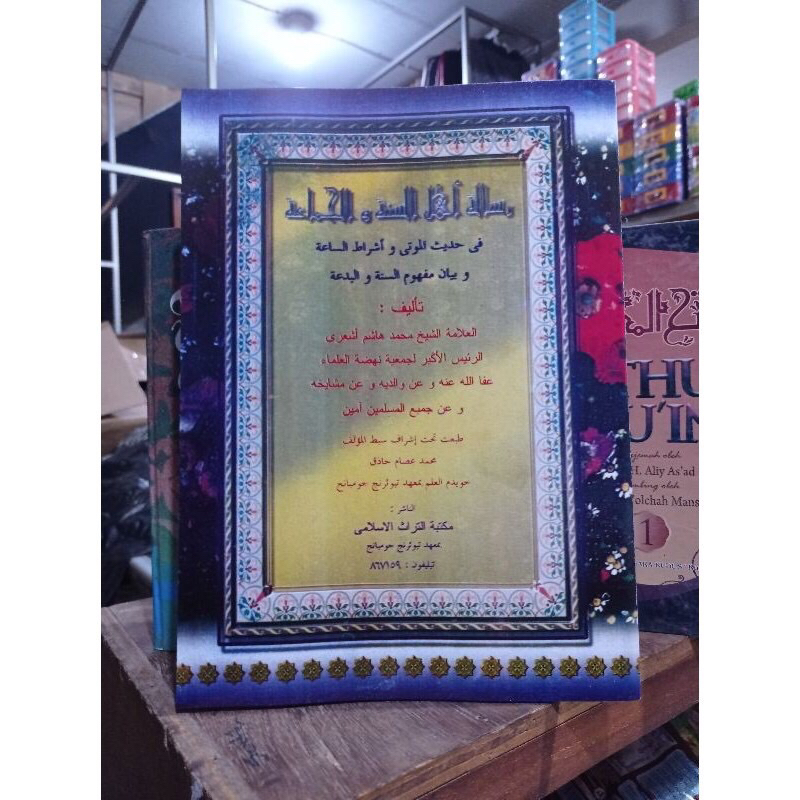 رسالة أهل السنة و الجماعة
فى حديث الموتى و أشراط الساعة
و بيان مفهوم السنة و البدعة
تأليف :
العلامة الشيخ محمد هاشم أشعرى
الرئيس الأكبر لجمعية نهضة العلماء
عفا الله عنه و عن والديه و عن مشايخه
و عن جميع المسلمين آمين
طبعت تحت إشراف سبط المؤلف
محمد عصام حاذق
خويدم العلم بمعهد تبوئرنج جومبانج
الناشر :
مكتبة التراث الاسلامى
بمعهد تبوئرنج جومبانج
تيليفون : ٨٦٧١٥٩
THU
U'IN
H. Aliy As'ad
olchah Mans
1